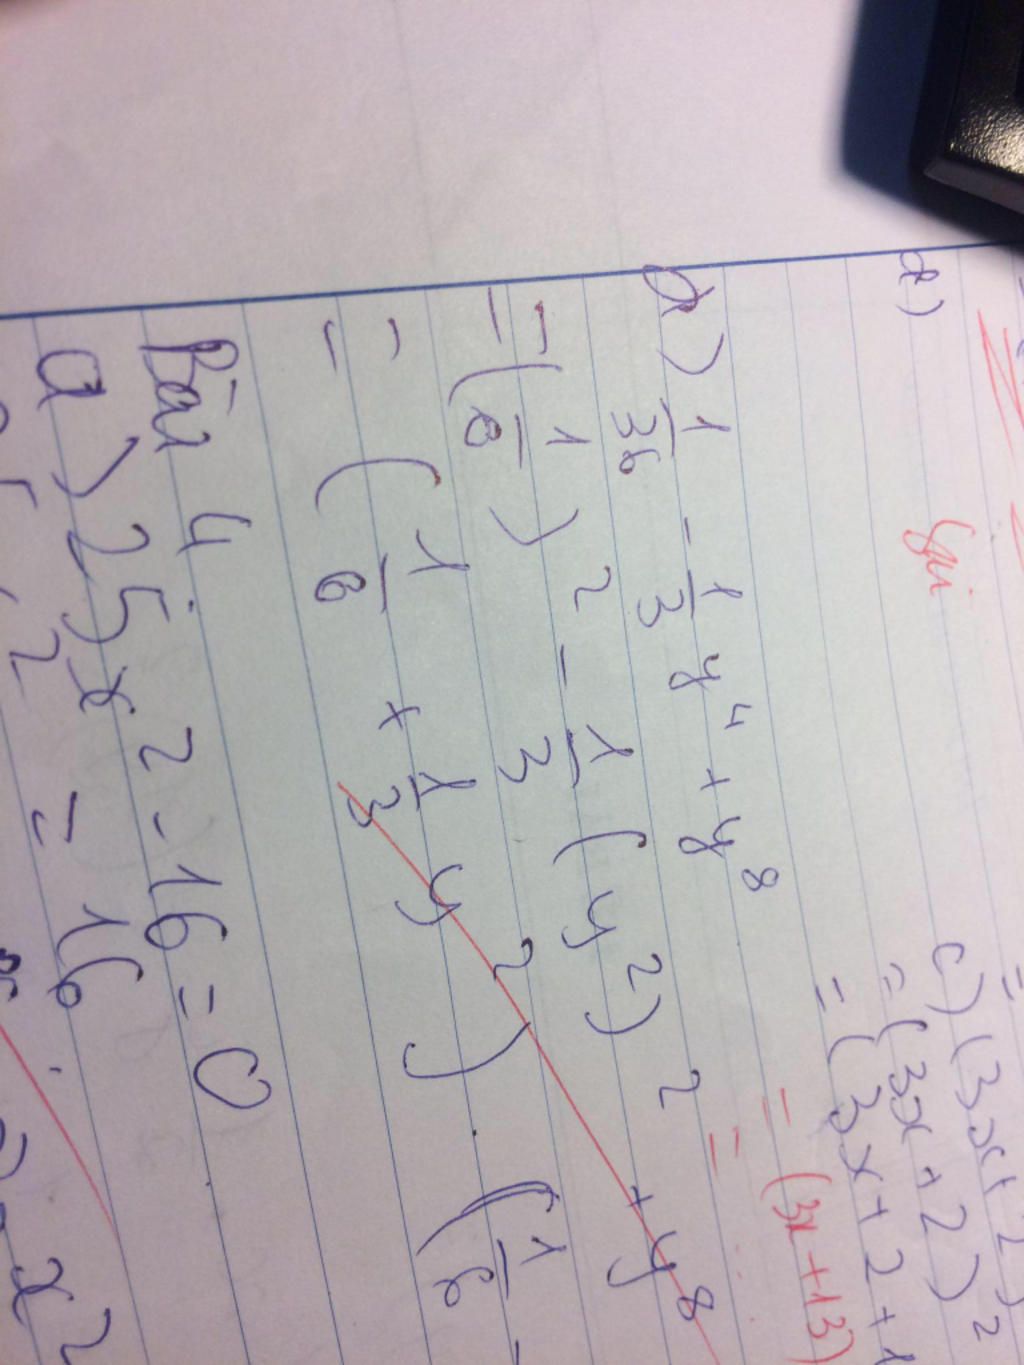 c) (3x+2)
= (3x+2)²
= (3x+2+1
= (3x+13)
=
d)
a) 1/36 - 1/3 y⁴ + y⁸
= (1/6)² - 1/3 (y²)² + y⁸
= (1/6 + 1/3 y²) (1/6 -
Bài 4
a) 25x² - 16 = 0
= 16
x²